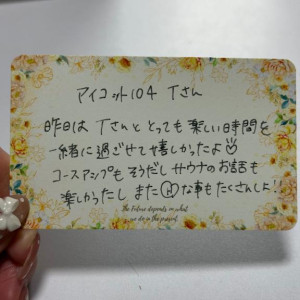 アイコット104 Tさん
昨日は Tさんと とっても 楽しい時間を
一緒に過ごせて嬉しかったよ
コースアップも そうだし サウナのお話も
楽しかったし また な事もたくさんしよ!!
The Future depends on what
we do in the present